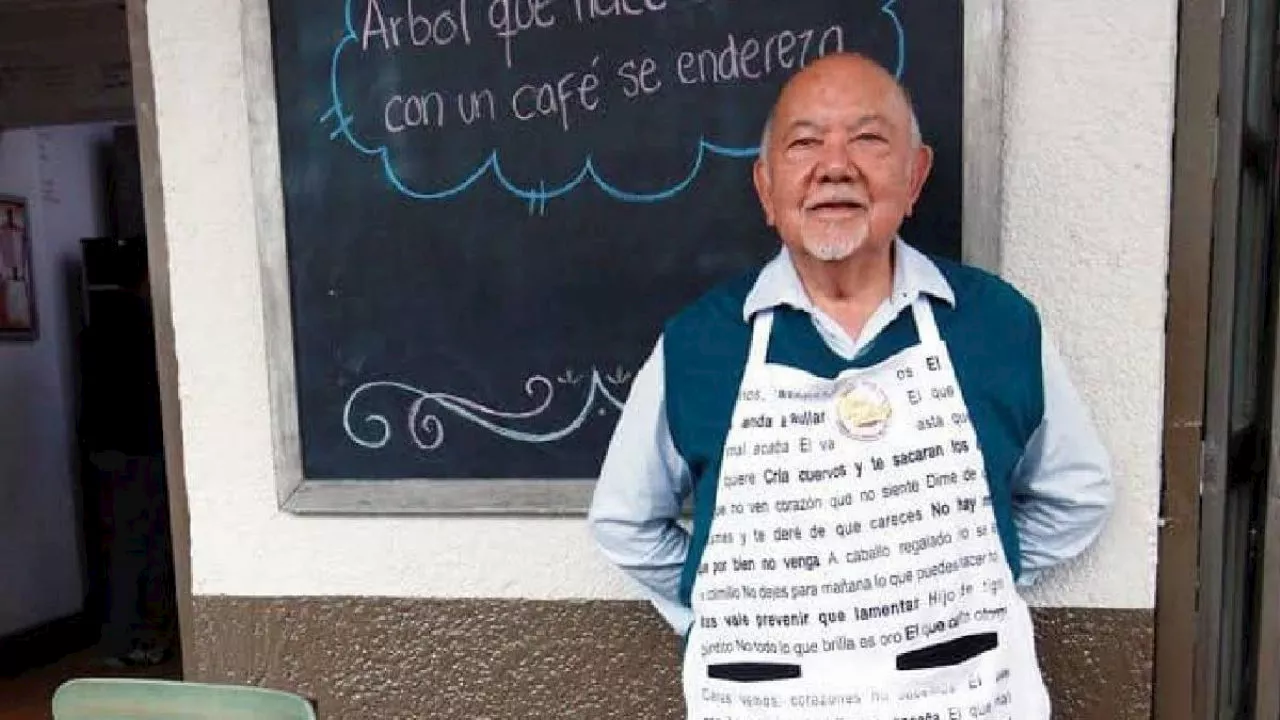 Árbol que nace
con un café se endereza
os El
El que
anda a aullar
asta qu
mal acaba El va
quere Cría cuervos y te sacaran los
ue no ven corazón que no siente Dime de
umes y te deré de que careces No hay m
e por bien no venga A caballo regalado no se
colmillo No dejes para mañana lo que puedes hacer
as vale prevenir que lamentar Hijo de tigr
pintito No todo lo que brilla es oro El que
Caras vemos, corazones no sabemos El
El que mal